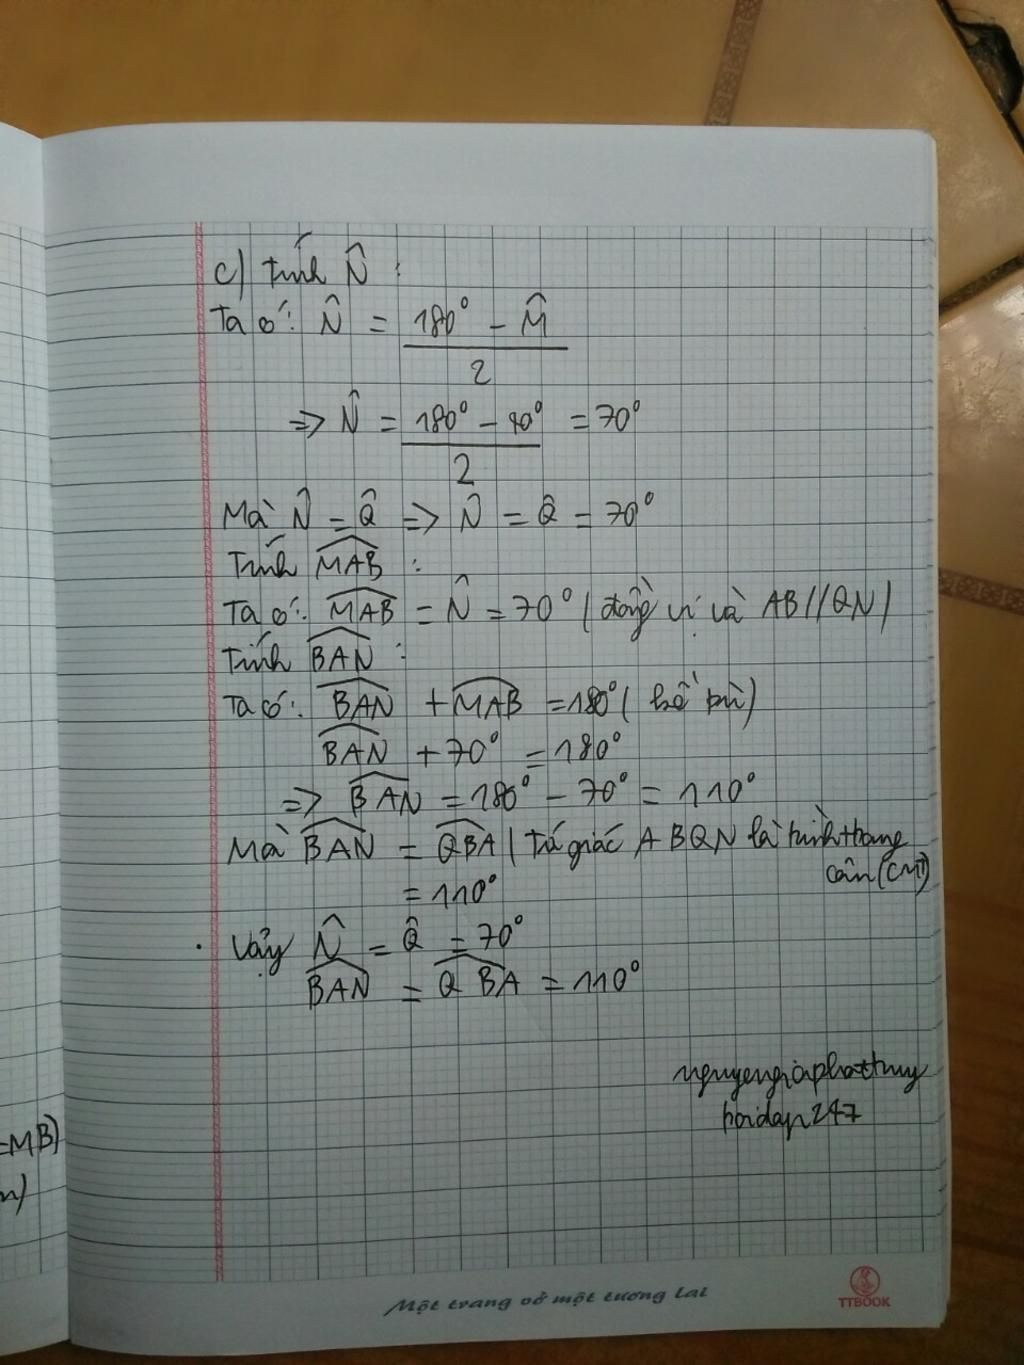 c) Tính N̂ :
Ta có: N̂ = (180° - M̂) / 2
=> N̂ = (180° - 40°) / 2 = 70°
Mà N̂ = Q̂ => N̂ = Q̂ = 70°
Tính MAB :
Ta có: MAB = N̂ = 70° (đồng vị và AB//QN)
Tính BAN :
Ta có: BAN + MAB = 180° (kề bù)
BAN + 70° = 180°
=> BAN = 180° - 70° = 110°
Mà BAN = QBA (Tứ giác ABQN là hình thang
cân (cmt)
= 110°
. Vậy N̂ = Q̂ = 70°
BAN = QBA = 110°
nguyengiaphatthuy
hoidap247
=MB)
Một trang vở một tương lai
TTBOOK